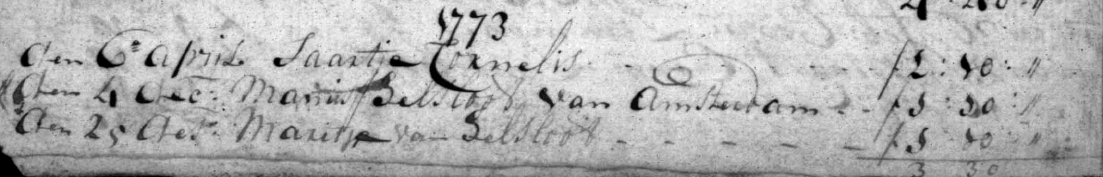 1773
den 6e april Saartje Cornelis - - - f 1 : 10 : "
den 4 dec: Manus Belsloot van Amsterdam - - f 1 : 10 : "
den 25 dec: Marietje van Belsloot - - - - - f 1 10 "
3 30